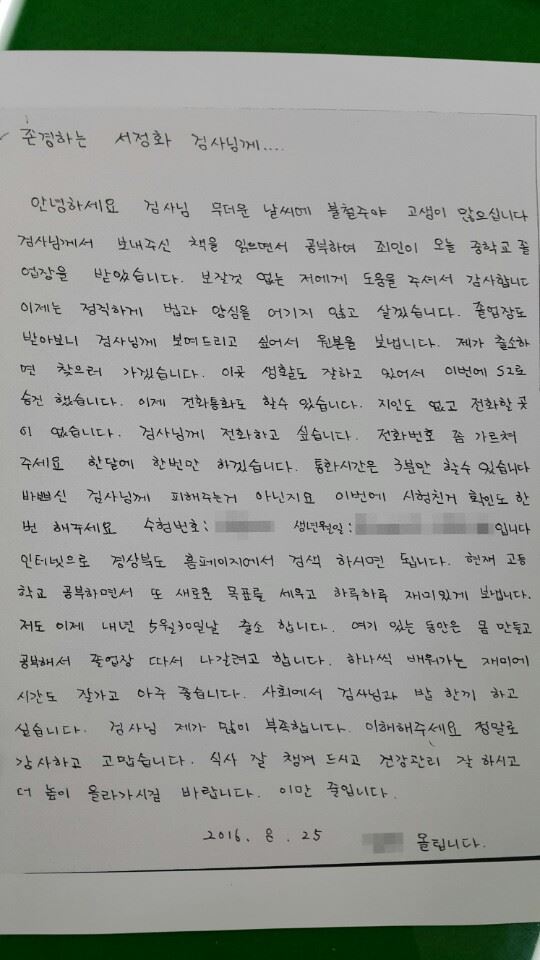 존경하는 서정화 검사님께....
안녕하세요 검사님 무더운 날씨에 불철주야 고생이 많으십니다
검사님께서 보내주신 책을 읽으면서 공부하여 죄인이 오늘 중학교 졸
업장을 받았습니다. 보잘것 없는 저에게 도움을 주셔서 감사합니다
이제는 정직하게 법과 양심을 어기지 않고 살겠습니다. 졸업장도
받아보니 검사님께 보여드리고 싶어서 원본을 보냅니다. 제가 출소하
면 찾으러 가겠습니다. 이곳 생활도 잘하고 있어서 이번에 S2로
승건 했습니다. 이제 전화통화도 할수 있습니다. 지인도 없고 전화할 곳
이 없습니다. 검사님께 전화하고 싶습니다. 전화번호 좀 가르쳐
주세요 한달에 한번만 하겠습니다. 통화시간은 3분만 할수 있습니다
바쁘신 검사님께 피해주는거 아닌지요 이번에 시험친거 확인도 한
번 해주세요 수험번호: 생년월일: 입니다
인터넷으로 경상북도 홈페이지에서 검색 하시면 됩니다. 현재 고등
학교 공부하면서 또 새로운 목표를 세우고 하루하루 재미있게 보냅니다.
저도 이제 내년 5월30일날 출소 합니다. 여기 있는 동안은 몸 만들고
공부해서 졸업장 따서 나갈려고 합니다. 하나씩 배워가는 재미에
시간도 잘가고 아주 좋습니다. 사회에서 검사님과 밥 한끼 하고
싶습니다. 검사님 제가 많이 부족합니다. 이해해주세요 정말로
감사하고 고맙습니다. 식사 잘 챙겨 드시고 건강관리 잘 하시고
더 높이 올라가시길 바랍니다. 이만 줄입니다.
2016. 8. 25
올립니다.